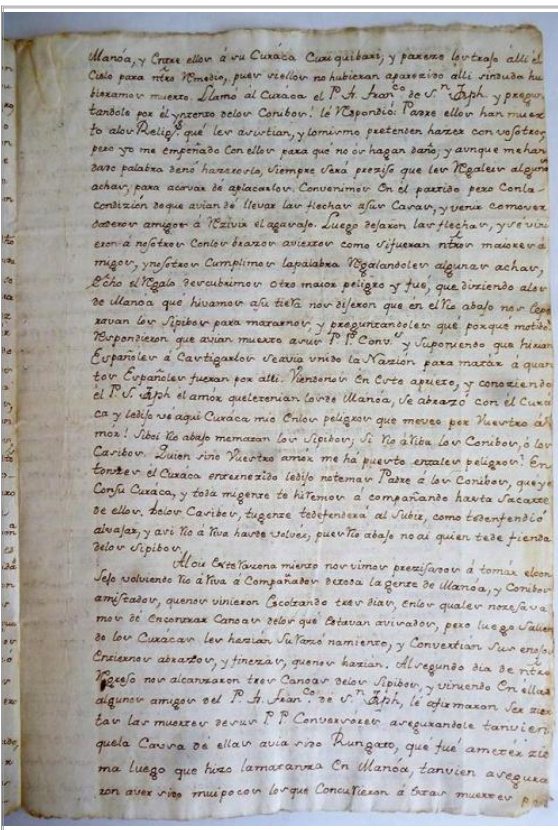 Manóa, y Entre ellos á su Curáca Curiquibari, y pareze los trajo álli él
Cielo para ntro Remedio, pues si ellos no hubieran aparezido álli sin duda hu
bieramos muerto. Llamo ál Curáca él P. A. Franco de Sn Jph y pregun
tandole por él yntento delos Conibos: lé Respondió: Padre ellos han muer
to alos Religs. qué les asistian, y lo mismo pretenden hazer con vosotros,
pero yo me empeñado Con ellos para qué no ós hagan daño; y aunque me han
dado palabra denó hazeroslo, siempre será preziso que les Regaleis algunas
achas, para acavar dé aplacarlos. Convenimos En él partido pero Con la
condizión deque avian dé llevar las flechas á sus Casas, y venir como ver
daderos amigos á Rezivir el agasajo. Luego dejaron las flechas, y sé vini
eron á nosotros Con los brazos aviertos como si fueran ntros maiores á
migos, y nosotros Cumplimos la palabra Regalandoles algunas achas,
Echo el Regalo descubrimos otro maior peligro y fué, que diziendo alos
de Manóa qué hivamos asu tierra nos dijeron que en él Rio abajo nos Espe
ravan los Sipibos para matarnos, y preguntandoles qué porque motibo
Respondieron que avian muerto asus P P Convs. y Suponiendo que hirian
Españoles á Castigarlos se avia vnido la Nazión para matár á quan
tos Españoles fueran por álli. Viendonos En Este aprieto, y conoziendo
él P. S. Jph él amor que le tenian los de Manóa, se abrazó con él Curá
ca y le dijo vé aqui Curáca mio En los peligros que me veo por Vuestro á
mór! Si boi Rio abajo me matan los Sipibos; Si Rio arriba los Conibos, ó los
Casibos. Quien sino Vuestro amór me há puesto en tales peligros? En
tonzes él Curáca enternezido le dijo no temas Padre á los Conibos, que yo
Con su Curaca, y toda mi gente te hiremos acompañando hasta Sacarte
de ellos. Delos Casibos, tu gente te defenderá al subir, como te defendió
al vajar, y asi Rio á Riva hasde volver, pues Rio abajo no ai quien te defienda
delos Sipibos.
Al oir Este Razonamiento nos vimos prezisados á tomár él con
sejo volviendo Rio á Riva á Compañados de toda la gente de Manóa, y Conibos
amistados, que nos vinieron Escoltando tres dias, En los quales no zesava
mos dé Encontrar Canoas delos qué Estavan avisados, pero luego Salien
do los Curácas les hazian Su Razónamiento, y Convertian Sus enojos
En tiernos abrazos, y finezas, que nos hazian. Al segundo dia de ntro
Regreso nos alcanzaron tres Canoas delos Sipibos, y viniendo En ellas
algunos amigos del P. A. Franco. de Sn Jph, lé afirmaron Ser zier
tas las muertes de sus P P Conversores asegurandole tanvien
que la Causa dé ellas avia sido Rungato, que fué ameter ziz
ma luego que hizo la matanza En Manóa, tanvien asegura
ron aver sido mui pocos los que Concurrieron á Estas muertes